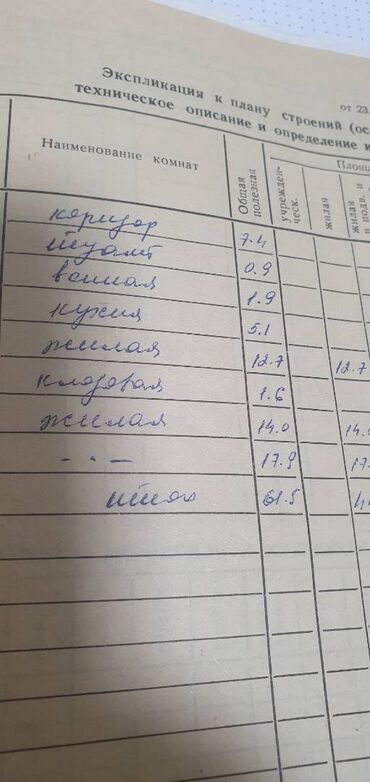 от 23.
Экспликация к плану строений (ос
техническое описание и определение и
Наименование комнат
Общая полезная
Площа
учрежден-
ческ.
жилая
жилая
в подв. и
коридор 7.4
туалет 0.9
ванная 1.9
кухня 5.1
жилая 12.7 12.7
кладовая 1.6
жилая 14.0 14.
-"- 17.9 17.
итого 61.5 44